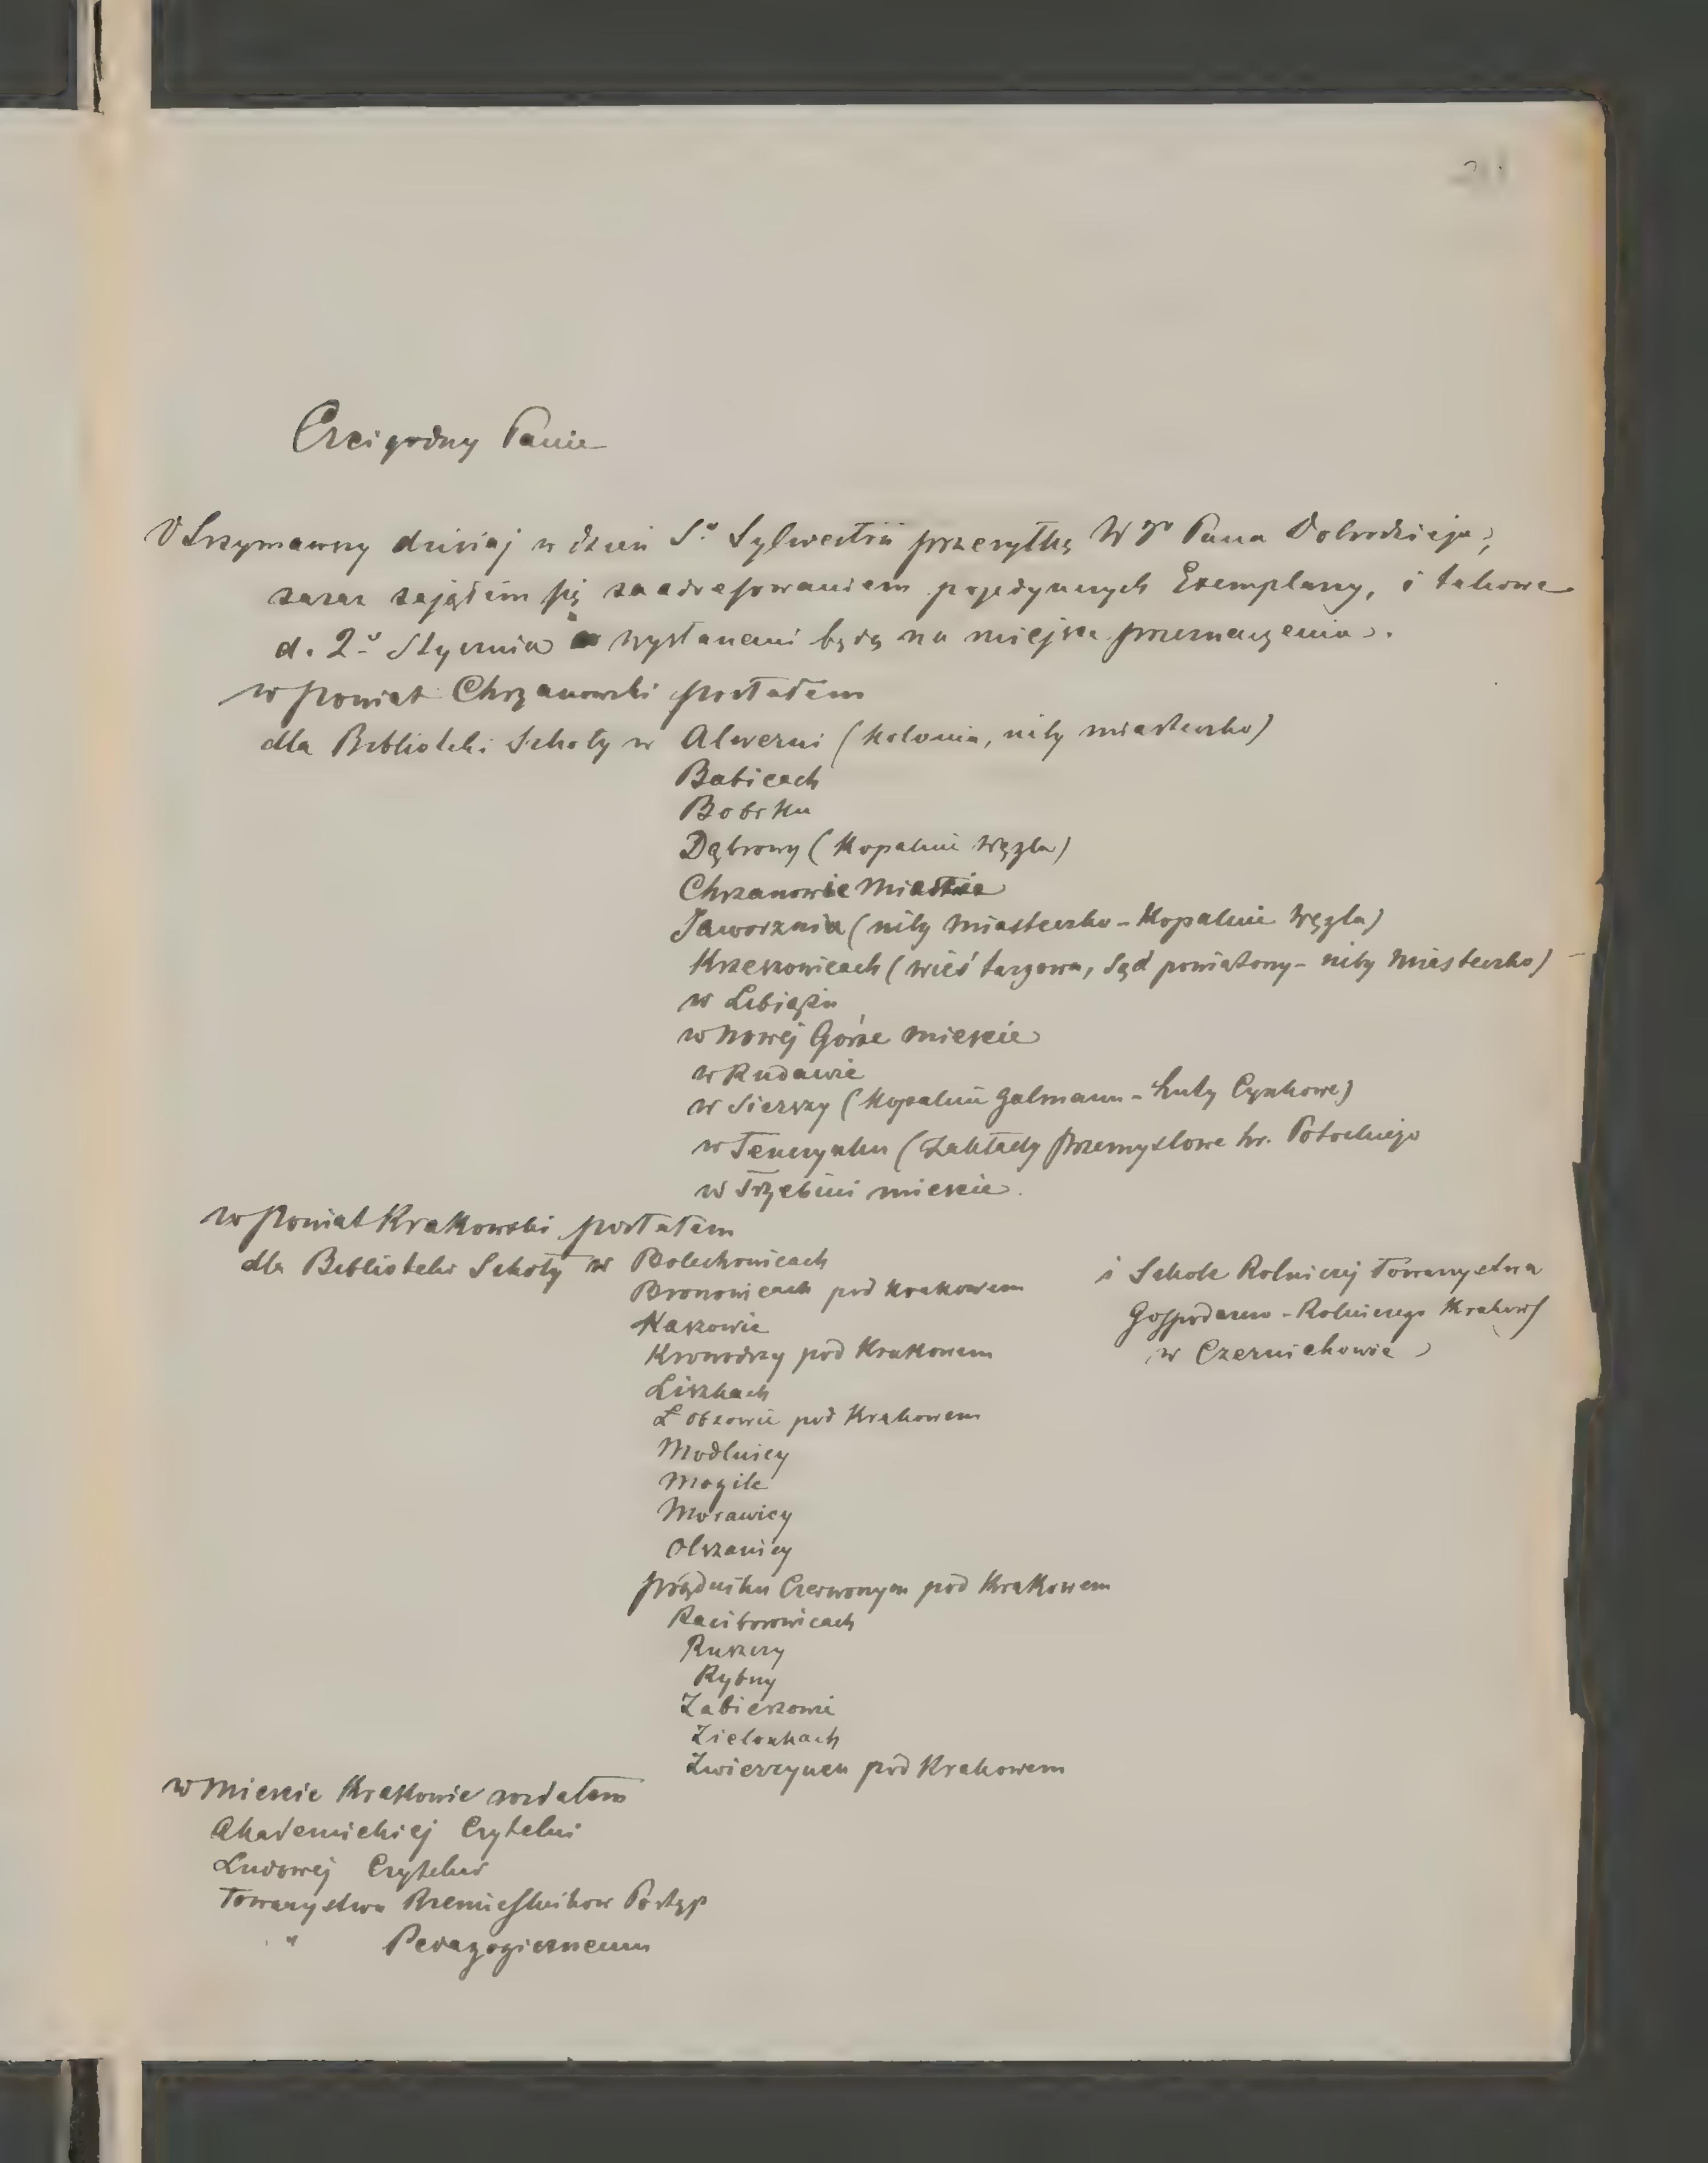 Czcigodny Panie
Otrzymawszy dzisiaj w dzień Sº Sylwestra przesyłkę Wgo Pana Dobrodzieja,
zaraz zająłem się zaadresowaniem pojedynczych Exemplarzy, i takowe
d. 2º Stycznia wysłanemi będą na miejsca przeznaczenia.
w powiat Chrzanowski posłałem
dla Biblioteki Szkoły w Alwerni (Kolonia, niby miasteczko)
Babicach
Bobrku
Dąbrowy (Kopalnie Węgla)
Chrzanowie Mieście
Jaworznia (niby Miasteczko - Kopalnie Węgla)
Krzeszowicach (wieś targowa, Sąd powiatowy - niby Miasteczko)
w Libiążu
w Nowej Górze mieście
w Rudawie
w Sierszy (Kopalnie Galmanu - huty Cynkowe)
w Tenczynku (Zakłady przemysłowe hr. Potockiego
w Trzebini mieście.
w powiat Krakowski posłałem
dla Biblioteki Szkoły w Bolechowicach
Bronowicach pod Krakowem
Kaszowie
Krowodrzy pod Krakowem
Liszkach
Łobzowie pod Krakowem
Modlnicy
Mogile
Morawicy
Olszanicy
prądniku Czerwonym pod Krakowem
Raciborowicach
Ruszczy
Rybny
Zabierzowie
Zielonkach
Zwierzyncu pod Krakowem
i Szkole Rolniczej Towarzystwa
Gospodarczo - Rolniczego Krakows
w Czernichowie
w Mieście Krakowie rozdałem
Akademickiej Czytelni
Ludowej Czytelni
Towarzystwu Rzemieślników Postęp
" Pedagogicznemu